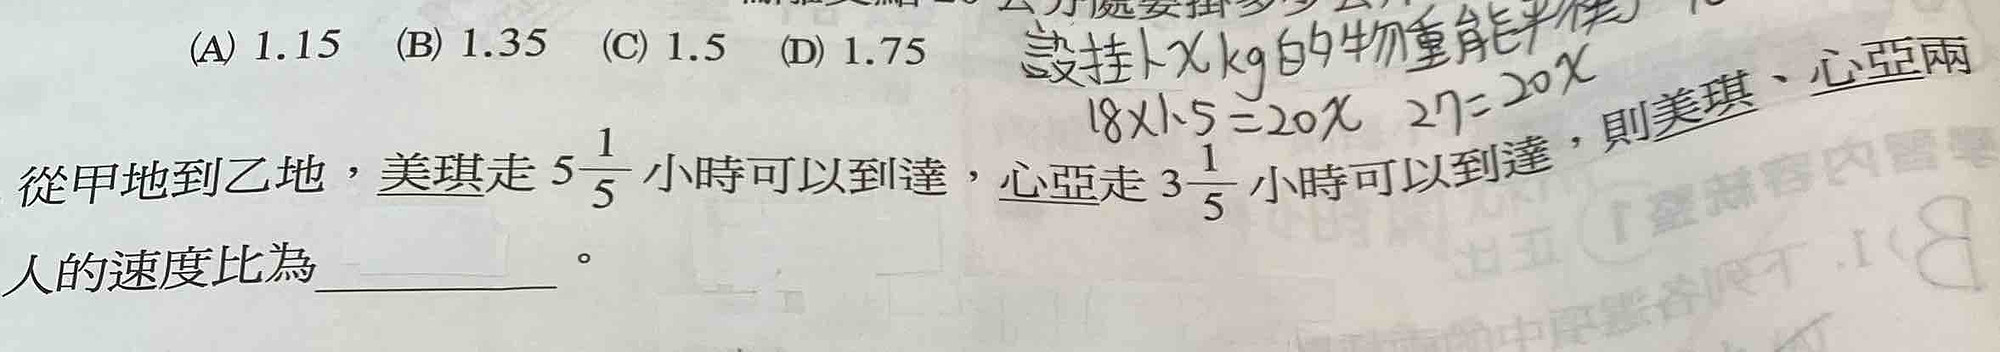 (A) 1.15 (B) 1.35 (C) 1.5 (D) 1.75
設挂上xkg的物重能平衡
18×1.5=20x 27=20x
從甲地到乙地，美琪走 5 1/5 小時可以到達，心亞走 3 1/5 小時可以到達，則美琪、心亞兩
人的速度比為＿＿＿＿＿。